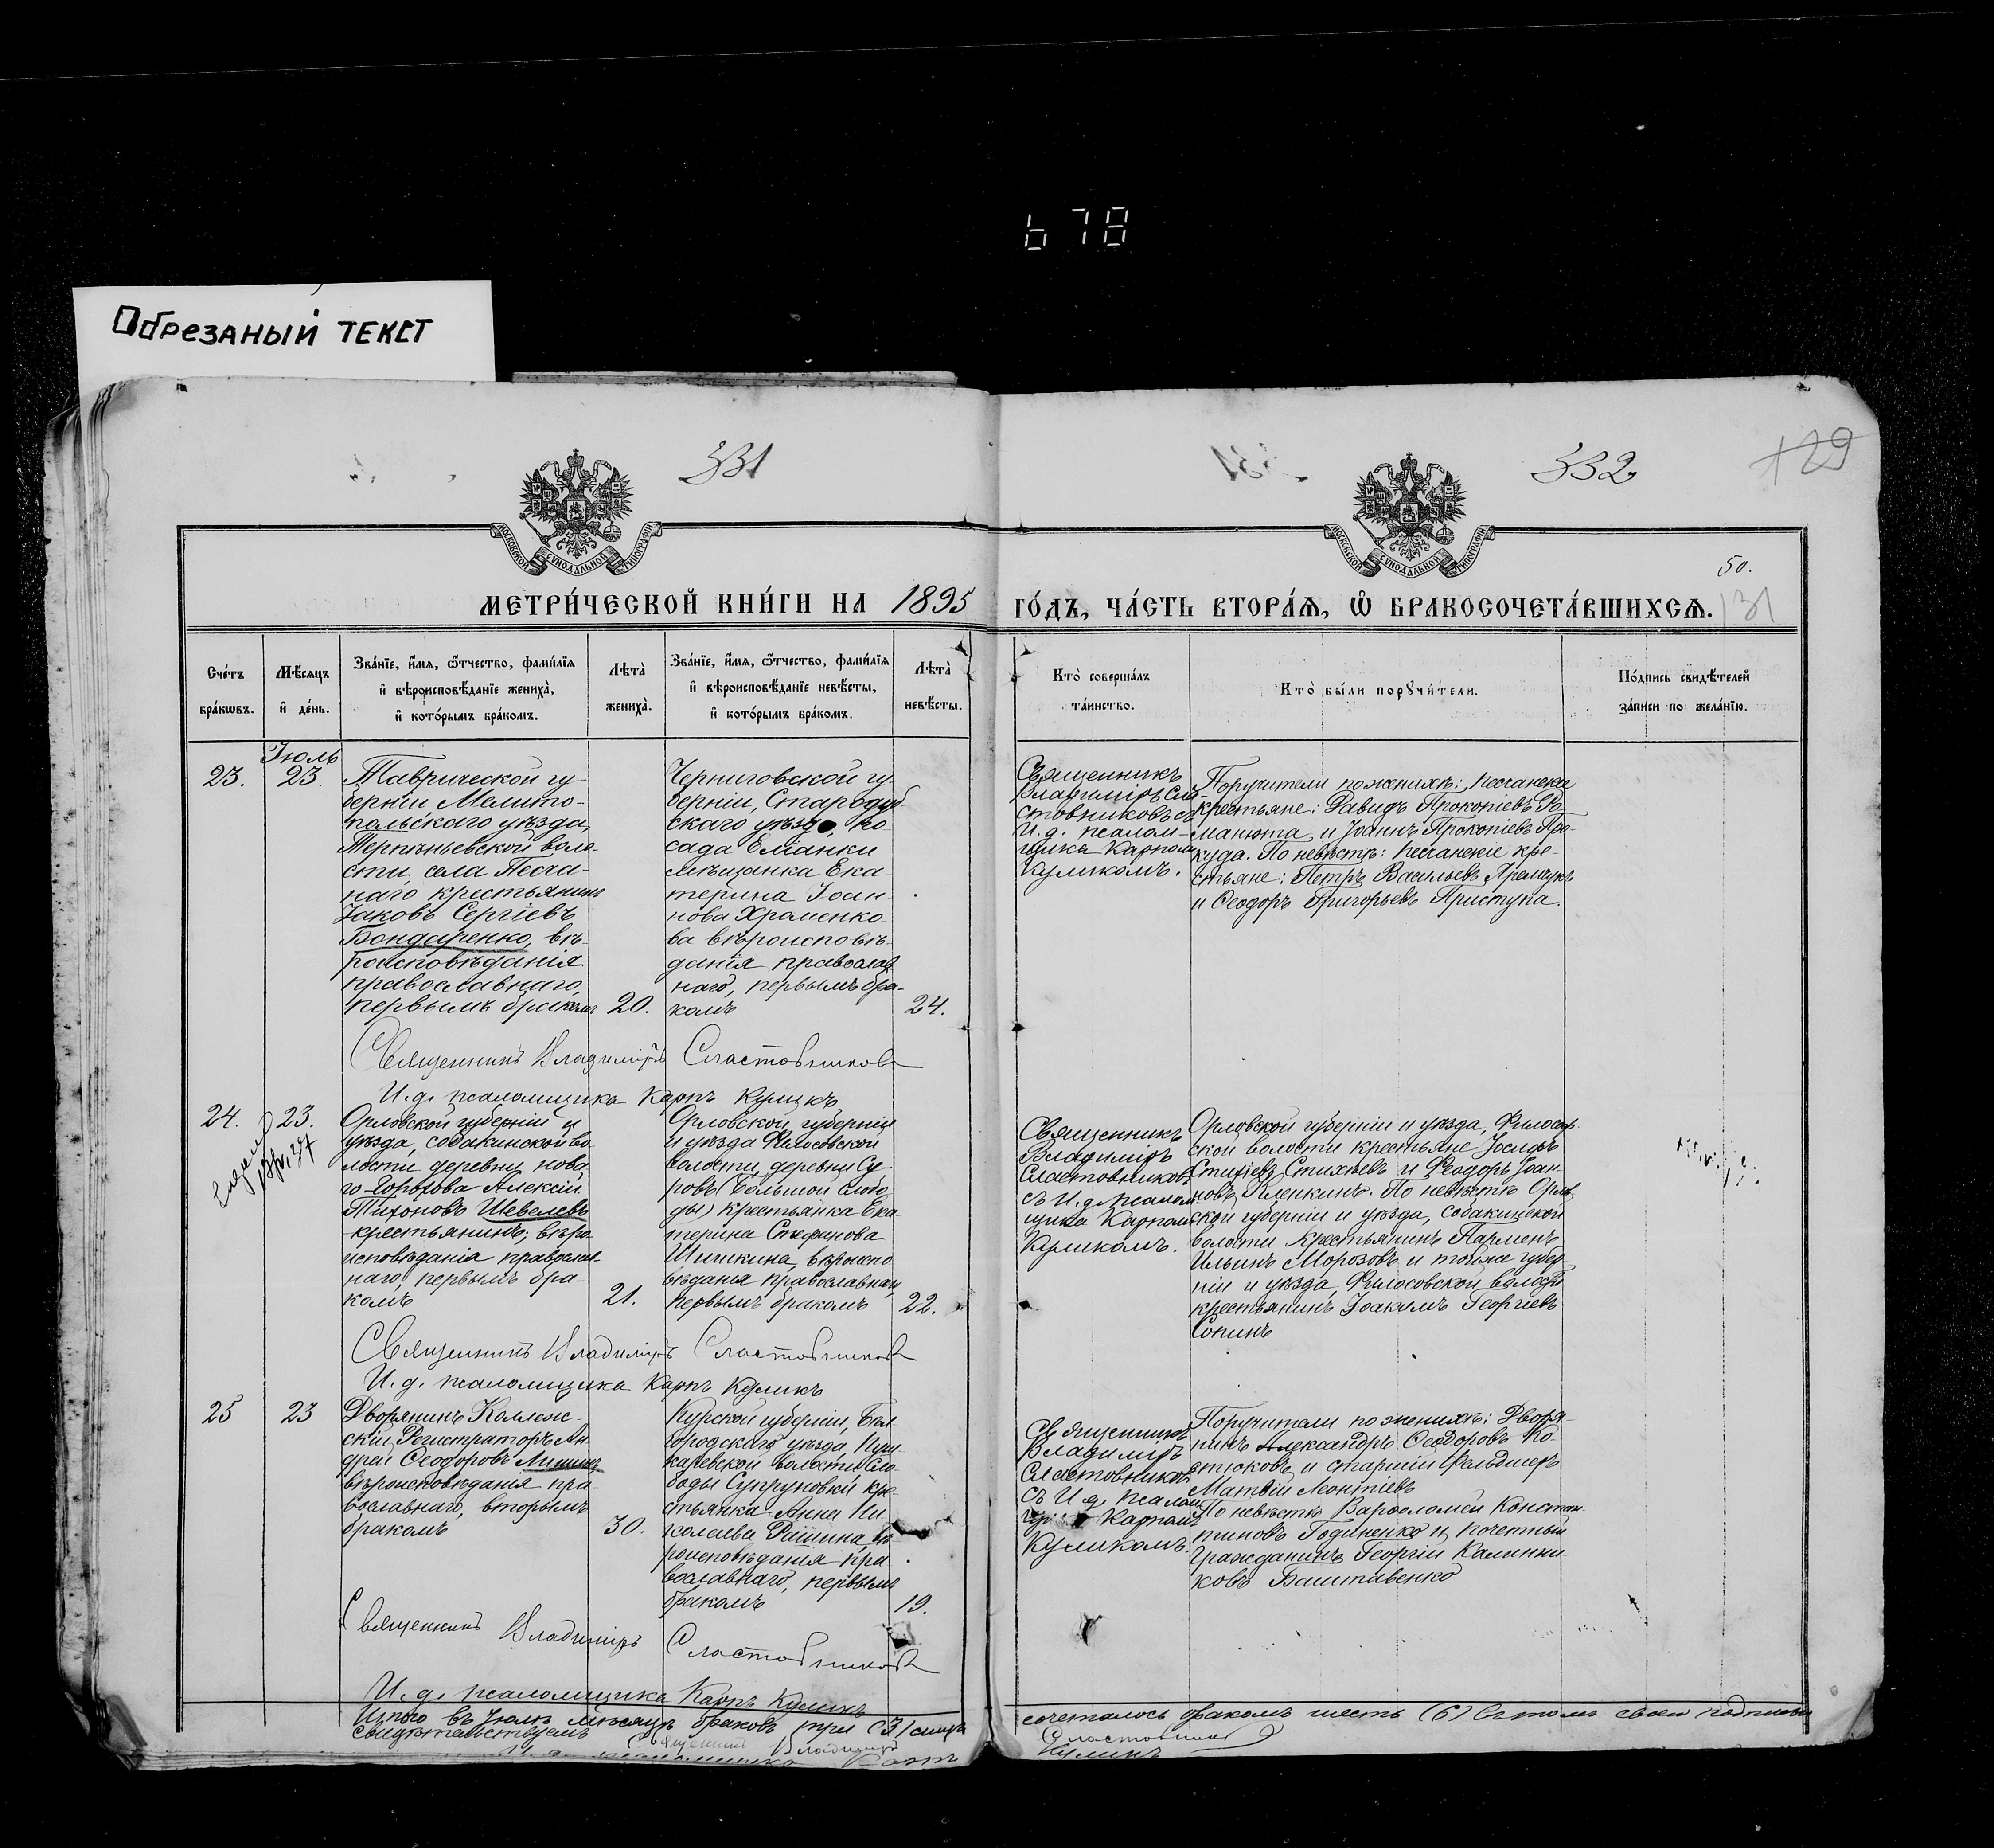 678
Обрезаный текст
331
332
129
50.
131
МЕТРИ́ЧЕСКОЙ КНИ́ГИ НА 1895
ГО́ДЪ, ЧА́СТЬ ВТОРА́Ѧ, Ѽ БРАКОСОЧЕТА́ВШИХСѦ.
Сче́тъ бра́кѡвъ.
Мѣ́сяцъ и҆ де́нь.
Зва́нїе, и҆́мѧ, ѻ҆́тчество, фами́лїѧ
и҆ вѣроисповѣ́данїе жениха̀,
и҆ кото́рымъ бра́комъ.
Лѣ́та̀ жениха̀.
Зва́нїе, и҆́мѧ, ѻ҆́тчество, фами́лїѧ
и҆ вѣроисповѣ́данїе невѣ́сты,
и҆ кото́рымъ бра́комъ.
Лѣ́та̀ невѣ́сты.
Кто̀ соверша́лъ
та́инство.
Кто̀ бы́ли порꙋчи́тели.
По́дпись свидѣ́телей
за́писи по жела́нїю.
23.
Іюль
23
Таврической гу-
берніи Мелито-
польскаго уѣзда,
Терпѣньевской воло-
сти села Песча-
наго крестьянинъ
Іаковъ Сергіевъ
Бондаренко, вѣ-
роисповѣданія
православнаго,
первымъ бракомъ
20.
Черниговской гу-
берніи, Стародуб
скаго уѣзда, по
сада Еліонки
мѣщанка Ека
терина Іоан-
нова Храменко
ва вѣроисповѣ-
данія православ
наго, первымъ бра-
комъ
24.
Священникъ
Владиміръ Сла-
стовниковъ съ
И.д. псалом-
щика Карпомъ
Куликомъ.
Поручители по женихѣ: песчанскіе
крестьяне: Давидъ Прокопіевъ Ро
манюта и Іоаннъ Прокопіевъ Про-
куда. По невѣстѣ: песчанскіе кре-
стьяне: Петръ Васильевъ Яремчукъ
и Ѳеодоръ Григорьевъ Приступа.
Священникъ Владиміръ Сластовниковъ
И.д. псаломщика Карпъ Куликъ
24.
23.
Орловской губерніи и
уѣзда, собакинской во
лости деревни ново
го Хорохова Алексій
Тихоновъ Шевелевъ
крестьянинъ; вѣро
исповѣданія православ-
наго, первымъ бра-
комъ
21.
Орловской губерніи
и уѣзда Философской
волости, деревни Су
ровъ (Большой Слобо
ды) крестьянка Ека
терина Стефанова
Шишкина, вѣроиспо
вѣданія православнаго,
первымъ бракомъ
22.
Священникъ
Владиміръ
Сластовниковъ
съ И.д. псалом
щика Карпомъ
Куликомъ.
Орловской губерніи и уѣзда, Философ
ской волости крестьяне Іосифъ
и Ѳеодоръ Іоан-
новъ Кленкинъ. По невѣстѣ Орлов
ской губерніи и уѣзда, собакинской
волости крестьянинъ Парменъ
Ильинъ Морозовъ и тойже губер
ніи и уѣзда, Философской волости
крестьянинъ Іоакимъ Георгіевъ
Сопинъ
Священникъ Владиміръ Сластовниковъ
И.д. псаломщика Карпъ Куликъ
25
23
Дворянинъ Коллеж-
скій Регистраторъ Ан
дрей Ѳеодоровъ
вѣроисповѣданія пра
вославнаго, вторымъ
бракомъ
30.
Курской губерніи, Бѣл
городскаго уѣзда, Пуш
каревской волости Сло
боды Супруновки кре
стьянка Анна Ни
колаева Рашина, вѣ
роисповѣданія пра
вославнаго, первымъ
бракомъ
19.
Священникъ
Владиміръ
Сластовниковъ
съ И.д. псалом
Карпомъ
Куликомъ.
Поручители по женихѣ: Дворя-
нинъ Александръ Ѳеодоровъ По
етисковъ и старшій Фельдшеръ
Матвій Леонтіевъ
По невѣстѣ Варѳоломей Констан
тиновъ Годиненко и почетный
Гражданинъ Георгій Калинни
ковъ Баштавенко
Священникъ Владиміръ Сластовниковъ
И.д. псаломщика Карпъ Куликъ
Итого въ Іюлѣ мѣсяцѣ браковъ три (3) лицъ
сочеталось бракомъ шесть (6) Въ томъ своею подписью
свидѣтельствуемъ Священникъ Владиміръ
Сластовниковъ
И.д. псаломщика Карпъ
Куликъ